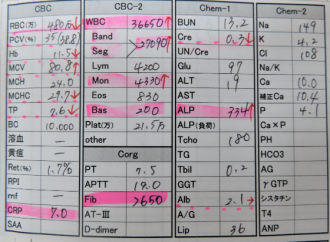 CBC CBC-2 Chem-1 Chem-2
RBC(万) 480万↓ WBC 36650↑ BUN 13.2 Na 149
PCV(%) 35 (38.8) Band Cre 0.3↓ K 4.2
Hb 11.5↓ Seg 27090↑ UN/Cre Cl 108
MCV 80.8↑ Lym 4200 Glu 97 Na/K
MCH 24.0 Mon 4330↑ ALT 19 Ca 10.0
MCHC 29.7↓ Eos 830 AST 補正Ca 10.4
TP 7.6↓ Bas 200 ALP 334↑ P 4.1
BC 10.000 Plat(万) 21.5万 ALP(負荷) Ca×P
溶血 − other Tcho 180 PH
黄疸 − Corg TG HCO3
Ret(%) 1.7% PT 7.5 Tbil 0.2 AG
RPI APTT 19.0 GGT γGTP
mf − Fib >650 Alb 2.1↓ シスタチン
CRP 7.0 AT-III A/G T4
SAA D-dimer Lip 36 ANP